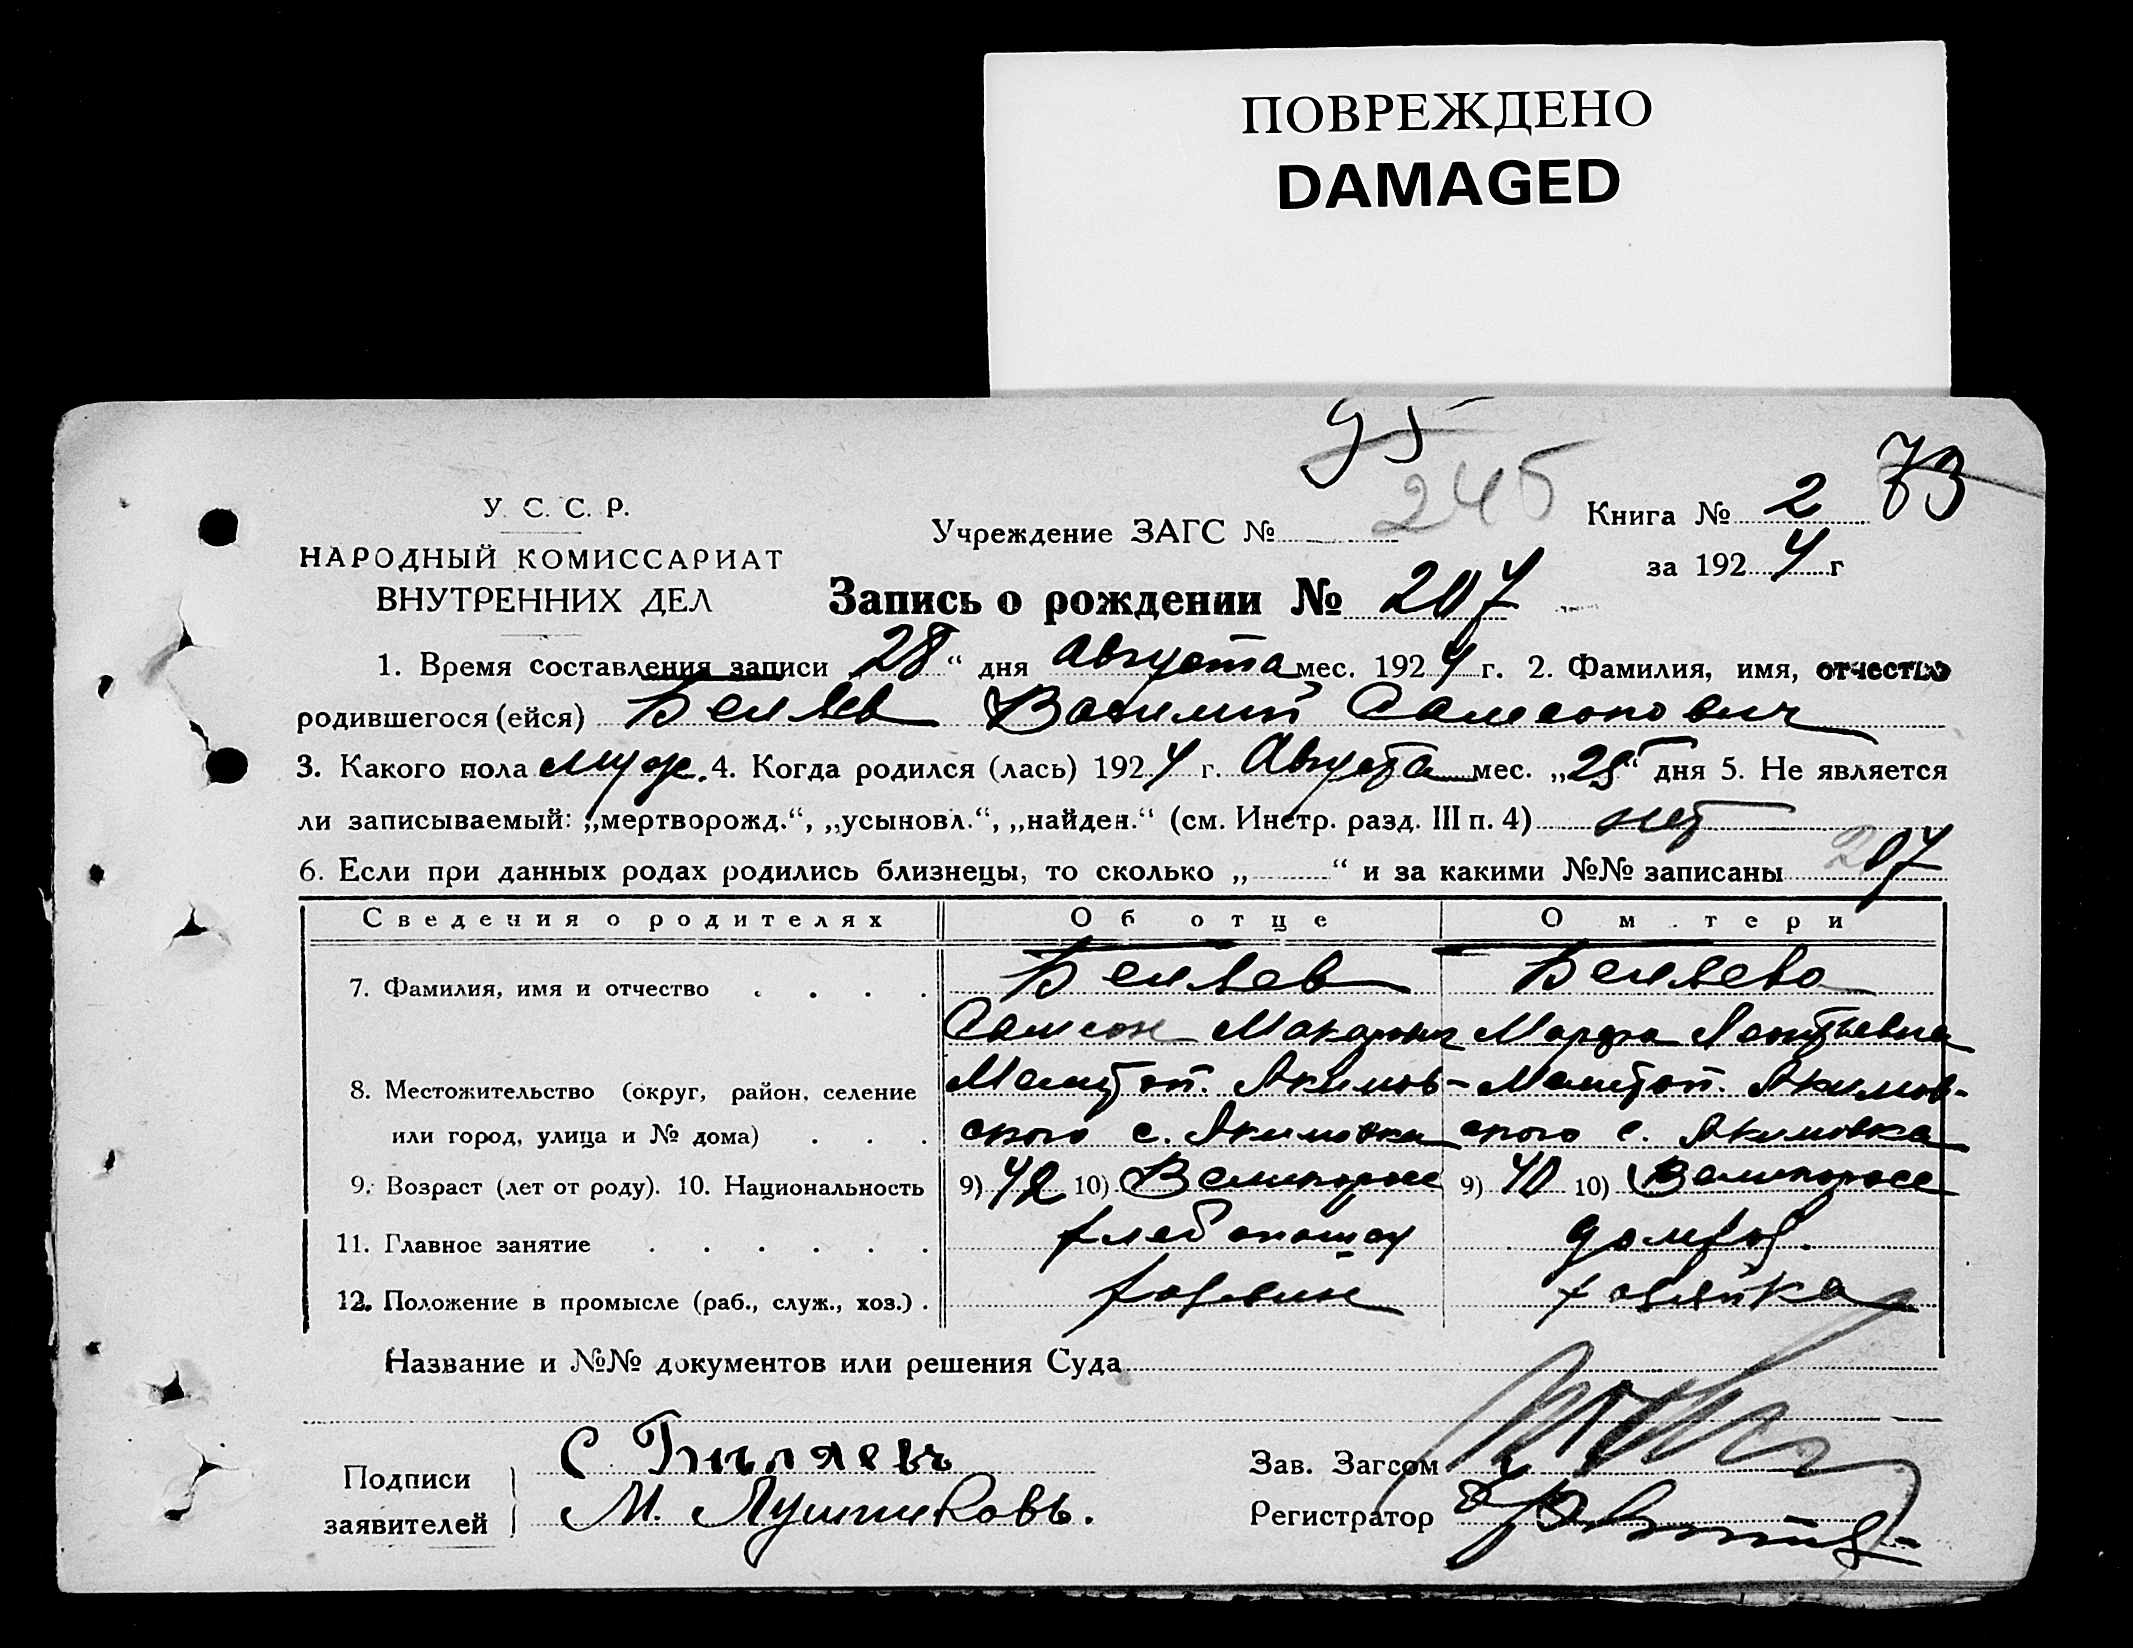 ПОВРЕЖДЕНО
DAMAGED
95
245
73
У. С. С. Р.
НАРОДНЫЙ КОМИССАРИАТ
ВНУТРЕННИХ ДЕЛ
Учреждение ЗАГС №
Книга № 2
за 1924 г
Запись о рождении № 207
1. Время составления записи 28 " дня Августа мес. 1924 г. 2. Фамилия, имя, отчество
родившегося (ейся) Беляев Василий Самсонович
3. Какого пола муж. 4. Когда родился (лась) 1924 г. Августа мес. „25" дня 5. Не является
ли записываемый: „мертворожд.", „усыновл.", „найден." (см. Инстр. разд. III п. 4) нет
6. Если при данных родах родились близнецы, то сколько „ " и за какими №№ записаны 207
Сведения о родителях Об отце О м тери
7. Фамилия, имя и отчество Беляев Беляева
Самсон Макарович Марфа Леонтьевна
8. Местожительство (округ, район, селение Мелитоп. Акимов- Мелитоп. Акимов-
или город, улица и № дома) ского с. Акимовка ского с. Акимовка
9. Возраст (лет от роду). 10. Национальность 9) 42 10) Великоросс 9) 40 10) Великоросс
11. Главное занятие хлебопашец домхоз.
12. Положение в промысле (раб., служ., хоз.) хозяин хозяйка
Название и №№ документов или решения Суда
Подписи
заявителей
С Биляевъ
М. Лушниковъ.
Зав. Загсом
Регистратор